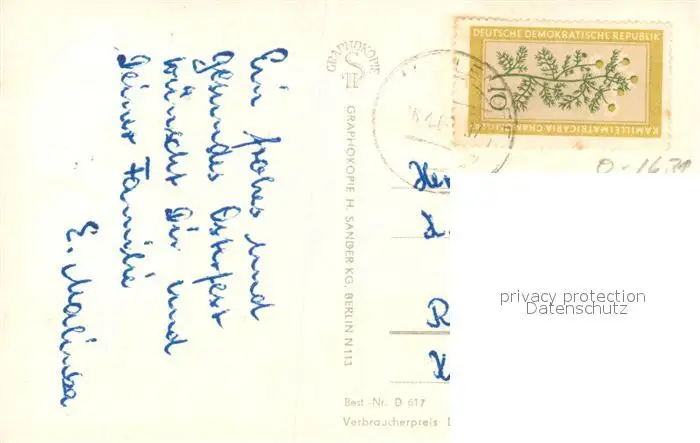 Ein frohes und
gesundes Osterfest
wünscht Dir und
Deiner Familie
E. Malinka
GRAPHOKOPIE
H S
GRAPHOKOPIE H. SANDER KG. BERLIN N 113
DEUTSCHE DEMOKRATISCHE REPUBLIK
10
KAMILLE (MATRICARIA CHAMOMILLA)
0-1630
Her
R
privacy protection
Datenschutz
Best.-Nr. D 617
Verbraucherpreis